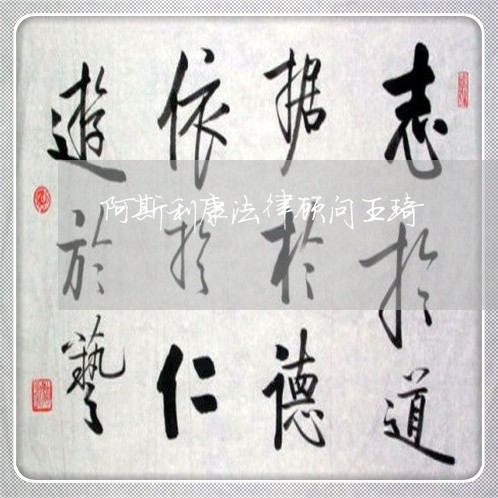 志於道
据於德
依於仁
遊於藝
阿斯利康法律顾问王琦